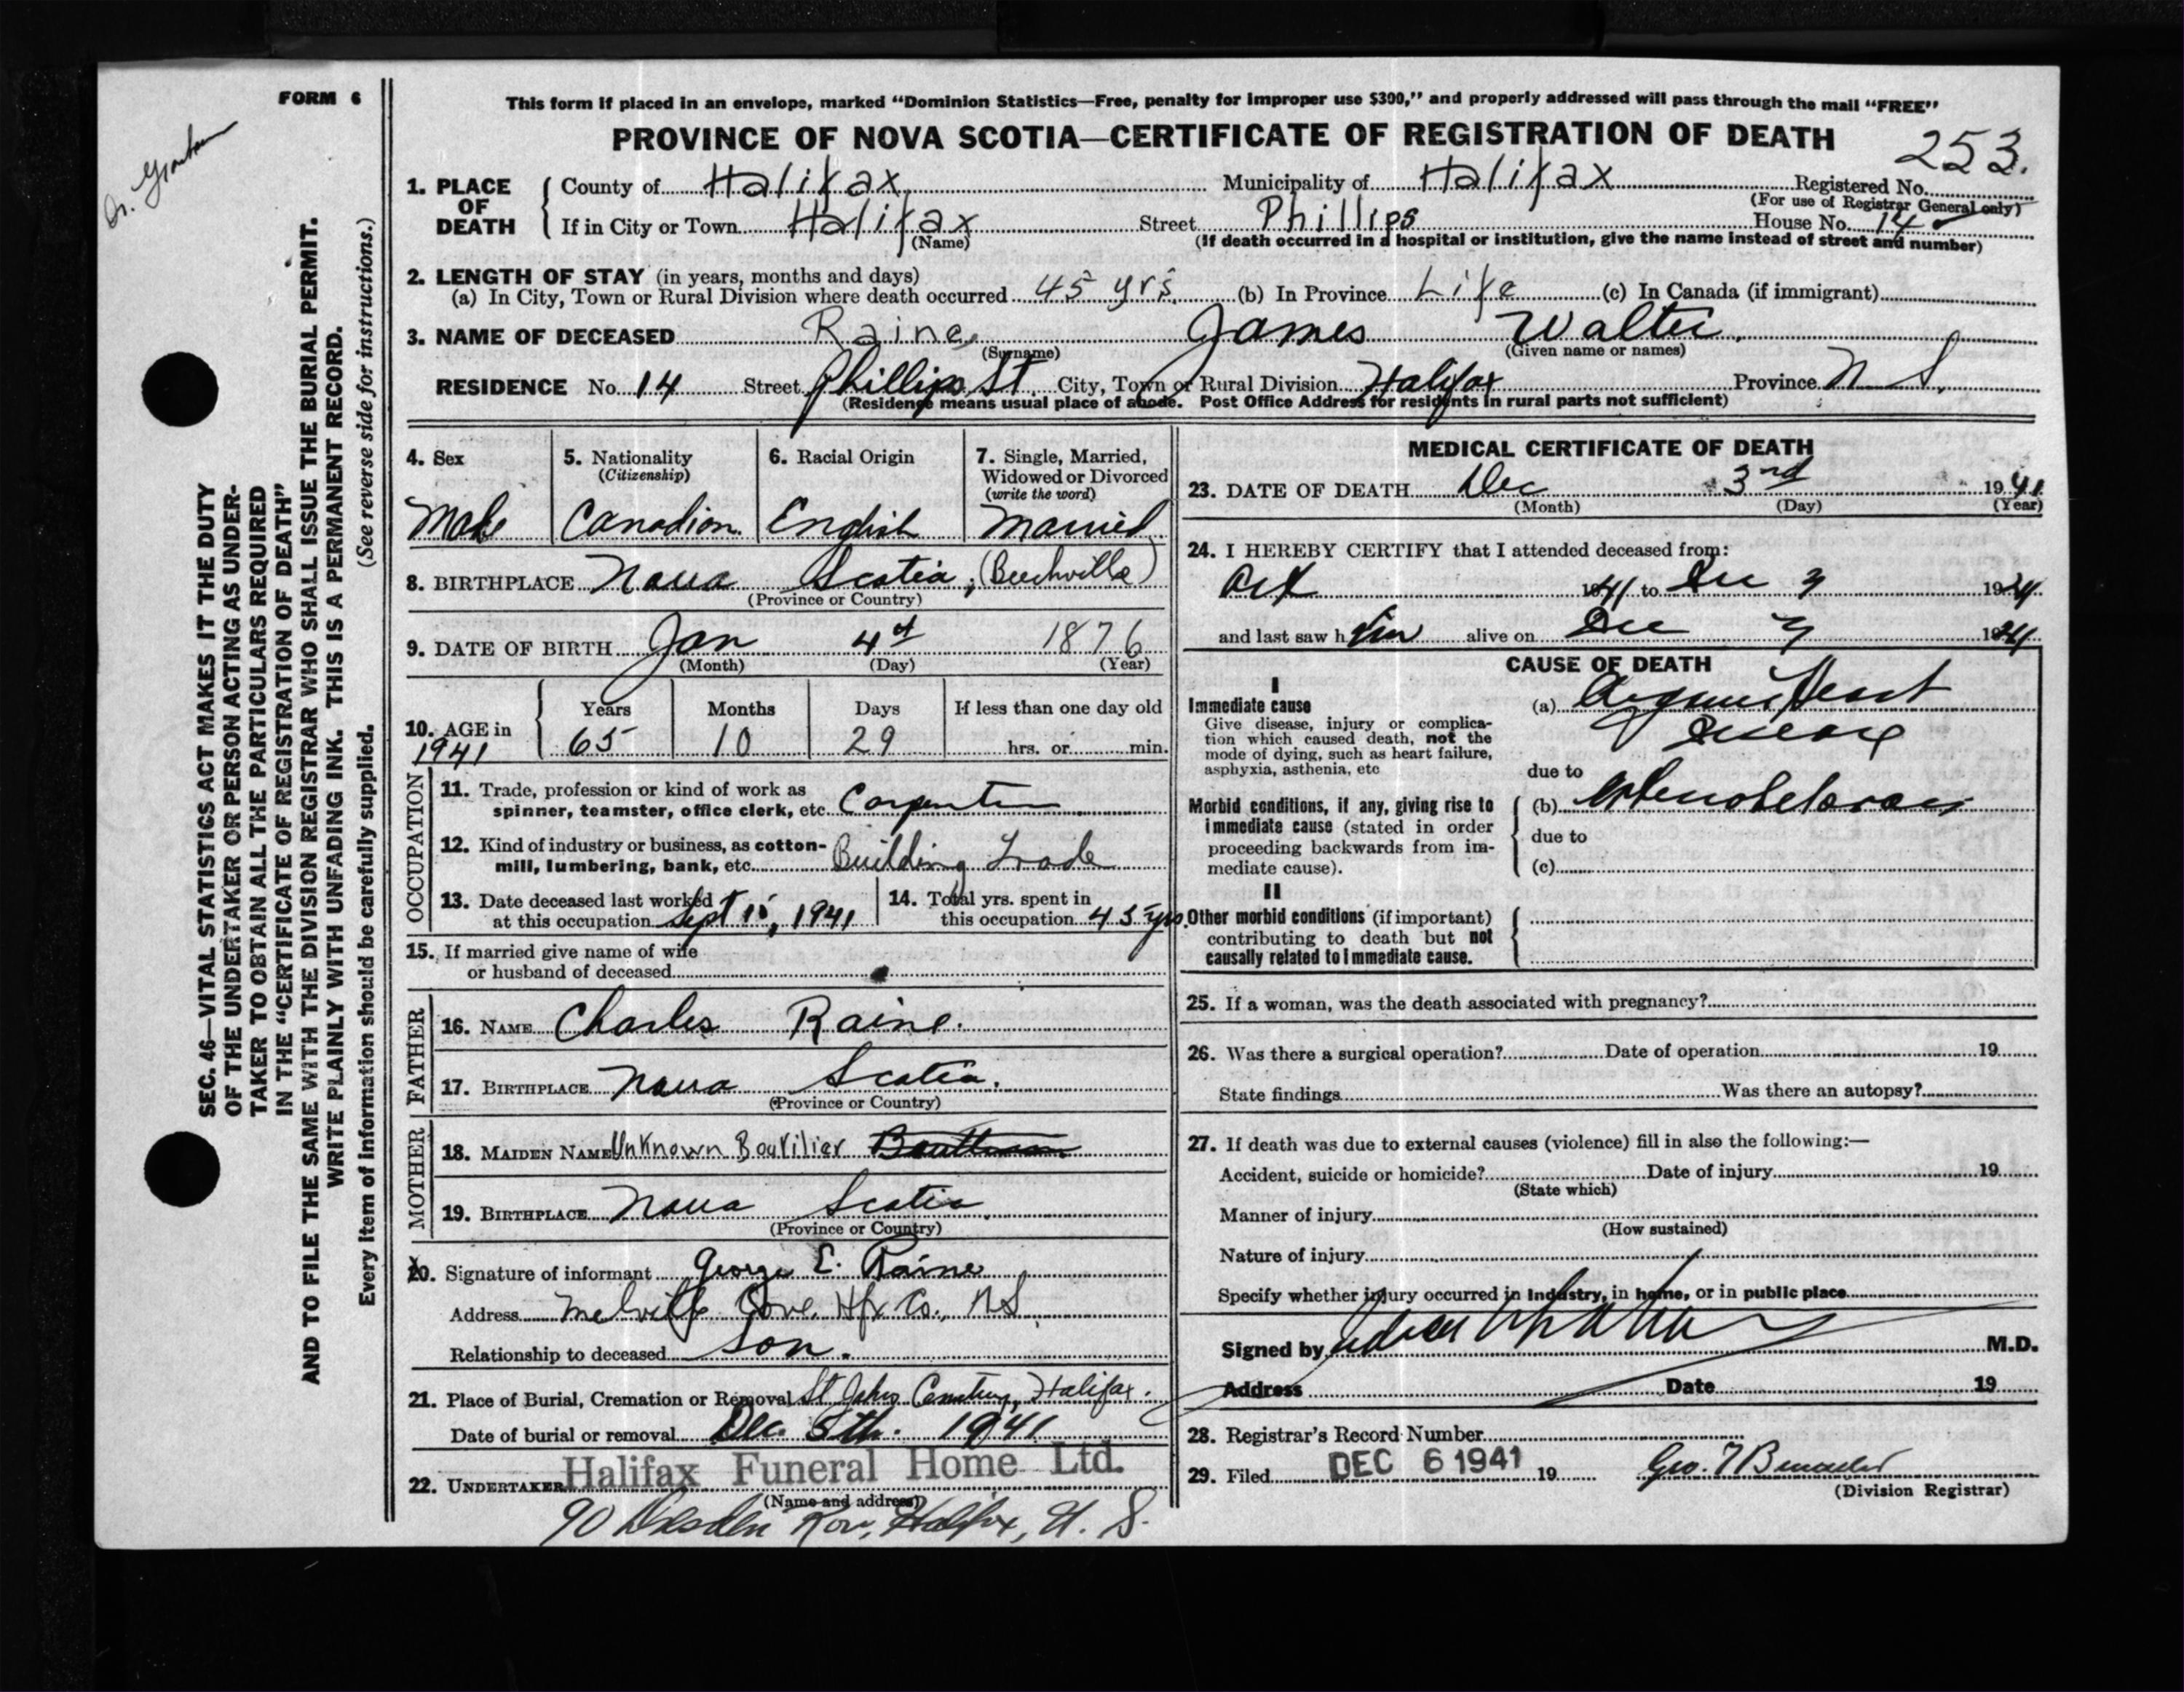 FORM 6
Dr.
SEC. 46—VITAL STATISTICS ACT MAKES IT THE DUTY
OF THE UNDERTAKER OR PERSON ACTING AS UNDER-
TAKER TO OBTAIN ALL THE PARTICULARS REQUIRED
IN THE "CERTIFICATE OF REGISTRATION OF DEATH"
AND TO FILE THE SAME WITH THE DIVISION REGISTRAR WHO SHALL ISSUE THE BURIAL PERMIT.
WRITE PLAINLY WITH UNFADING INK. THIS IS A PERMANENT RECORD.
Every item of information should be carefully supplied. (See reverse side for instructions.)
This form if placed in an envelope, marked "Dominion Statistics—Free, penalty for improper use $300," and properly addressed will pass through the mail "FREE"
PROVINCE OF NOVA SCOTIA—CERTIFICATE OF REGISTRATION OF DEATH
253.
1. PLACE OF DEATH County of Halifax, Municipality of Halifax Registered No.
(For use of Registrar General only)
If in City or Town Halifax Street Phillips House No. 14
(Name) (If death occurred in a hospital or institution, give the name instead of street and number)
2. LENGTH OF STAY (in years, months and days)
(a) In City, Town or Rural Division where death occurred 45 yrs. (b) In Province Life (c) In Canada (if immigrant)
3. NAME OF DECEASED Raine, James Walter.
(Surname) (Given name or names)
RESIDENCE No. 14 Street Phillips St. City, Town or Rural Division Halifax Province N S.
(Residence means usual place of abode. Post Office Address for residents in rural parts not sufficient)
4. Sex 5. Nationality (Citizenship) 6. Racial Origin 7. Single, Married, Widowed or Divorced (write the word)
Male Canadian. English Married
8. BIRTHPLACE Nova Scotia, (Beechville)
(Province or Country)
9. DATE OF BIRTH Jan 4th 1876
(Month) (Day) (Year)
10. AGE in 1941 Years Months Days If less than one day old
65 10 29 hrs. or min.
OCCUPATION
11. Trade, profession or kind of work as
spinner, teamster, office clerk, etc. Carpenter
12. Kind of industry or business, as cotton-
mill, lumbering, bank, etc. Building Trade
13. Date deceased last worked
at this occupation Sept 15, 1941
14. Total yrs. spent in
this occupation 45 yrs.
15. If married give name of wife
or husband of deceased
FATHER
16. NAME Charles Raine.
17. BIRTHPLACE Nova Scotia.
(Province or Country)
MOTHER
18. MAIDEN NAME Unknown Boutilier
19. BIRTHPLACE Nova Scotia.
(Province or Country)
20. Signature of informant George E. Raine
Address Melville Cove, Hfx Co., NS
Relationship to deceased Son.
21. Place of Burial, Cremation or Removal St Johns Cemetery, Halifax.
Date of burial or removal Dec. 5th. 1941
22. UNDERTAKER Halifax Funeral Home Ltd.
(Name and address)
90 Dresden Row, Halifax, N. S.
MEDICAL CERTIFICATE OF DEATH
23. DATE OF DEATH Dec 3rd 1941
(Month) (Day) (Year)
24. I HEREBY CERTIFY that I attended deceased from:
Oct 1941 to Dec 3 1941
and last saw him alive on Dec 3 1941
CAUSE OF DEATH
I
Immediate cause
Give disease, injury or complica-
tion which caused death, not the
mode of dying, such as heart failure,
asphyxia, asthenia, etc
(a) Heart
Disease
due to
Morbid conditions, if any, giving rise to
immediate cause (stated in order
proceeding backwards from im-
mediate cause).
(b)
due to
(c)
II
Other morbid conditions (if important)
contributing to death but not
causally related to immediate cause.
25. If a woman, was the death associated with pregnancy?
26. Was there a surgical operation? Date of operation 19
State findings Was there an autopsy?
27. If death was due to external causes (violence) fill in also the following:—
Accident, suicide or homicide? Date of injury 19
(State which)
Manner of injury
(How sustained)
Nature of injury
Specify whether injury occurred in industry, in home, or in public place
Signed by M.D.
Address Date 19
28. Registrar's Record Number
29. Filed DEC 6 1941 19 Geo.
(Division Registrar)